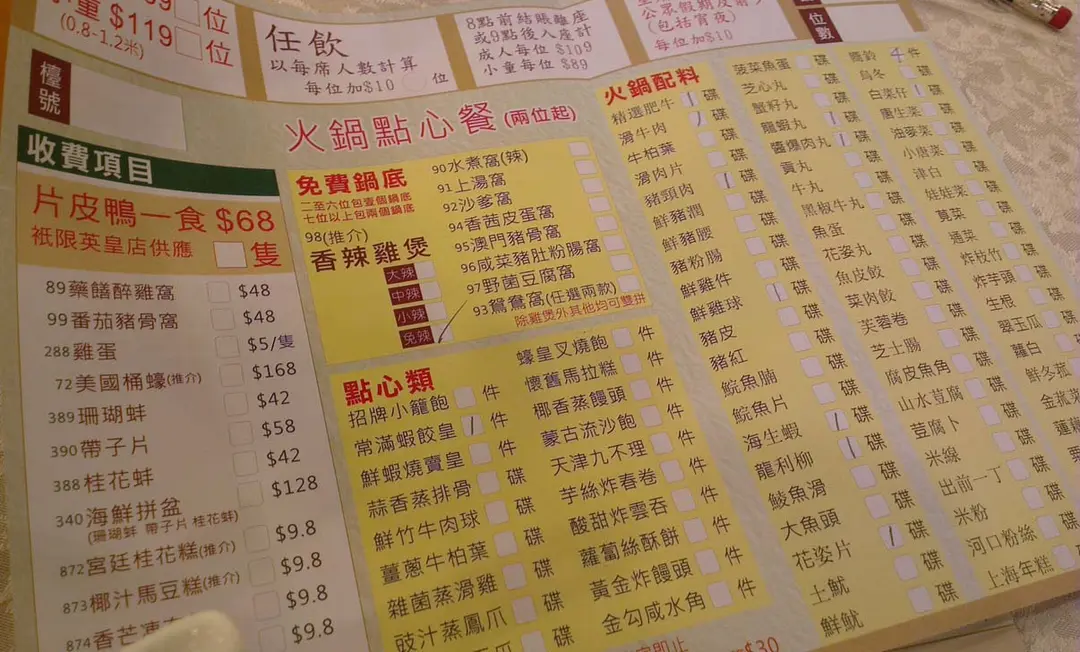 $119 位
(0.8-1.2米) 位
任飲
以每席人數計算
每位加$10 位
8點前結賬離座
或9點後入座計
成人每位 $109
小童每位 $89
(包括宵夜)
每位加$10
位數
檯號
火鍋點心餐(兩位起)
收費項目
片皮鴨一食 $68
祇限英皇店供應 隻
89 藥膳醉雞窩 $48
99 番茄豬骨窩 $48
288 雞蛋 $5/隻
72 美國桶蠔(推介) $168
389 珊瑚蚌 $42
390 帶子片 $58
388 桂花蚌 $42
340 海鮮拼盆 $128
(珊瑚蚌 帶子片 桂花蚌)
872 宮廷桂花糕(推介) $9.8
873 椰汁馬豆糕(推介) $9.8
874 香芒 $9.8
$9.8
免費鍋底
二至六位包壹個鍋底
七位以上包兩個鍋底
98(推介)
香辣雞煲
大辣
中辣
小辣
免辣
90 水煮窩(辣)
91 上湯窩
92 沙爹窩
94 香茜皮蛋窩
95 澳門豬骨窩
96 咸菜豬肚粉腸窩
97 野菌豆腐窩
93 鴛鴦窩(任選兩款)
除雞煲外其他均可雙拼
點心類
招牌小籠飽 件
常滿蝦餃皇 / 件
鮮蝦燒賣皇 件
蒜香蒸排骨 碟
鮮竹牛肉球 碟
薑蔥牛柏葉 碟
雜菌蒸滑雞 碟
豉汁蒸鳳爪 碟
碟
蠔皇叉燒飽 件
懷舊馬拉糕 件
椰香蒸饅頭 件
蒙古流沙飽 件
天津九不理 件
芋絲炸春卷 件
酸甜炸雲吞 件
蘿蔔絲酥餅 件
黃金炸饅頭 件
金勾咸水角 件
$30
火鍋配料
精選肥牛 / 碟
滑牛肉 / 碟
牛柏葉 碟
滑肉片 碟
豬頸肉 / 碟
鮮豬潤 碟
鮮豬腰 碟
豬粉腸 碟
鮮雞件 碟
鮮雞球 / 碟
豬皮 碟
豬紅 碟
鯇魚腩 碟
鯇魚片 碟
海生蝦 / 碟
龍利柳 / 碟
鯪魚滑 碟
大魚頭 碟
花姿片 碟
土魷 / 碟
鮮魷 碟
菠菜魚蛋 碟
芝心丸 碟
蟹籽丸 碟
龍蝦丸 碟
醬爆肉丸 / 碟
貢丸 碟
牛丸 碟
黑椒牛丸 碟
魚蛋 碟
花姿丸 碟
魚皮餃 碟
菜肉餃 碟
芙蓉卷 碟
芝士腸 碟
腐皮魚角 碟
山水豆腐 碟
豆腐卜 碟
米線 碟
出前一丁 碟
米粉 碟
河口粉絲 碟
上海年糕 碟
響鈴 4 件
烏冬 碟
白菜仔 / 碟
唐生菜 碟
油麥菜 碟
小唐菜 碟
津白 碟
娃娃菜 碟
莧菜 碟
通菜 碟
炸枝竹 碟
炸芋頭 碟
生根 碟
翠玉瓜
蘿白
鮮冬菰
金菇菜